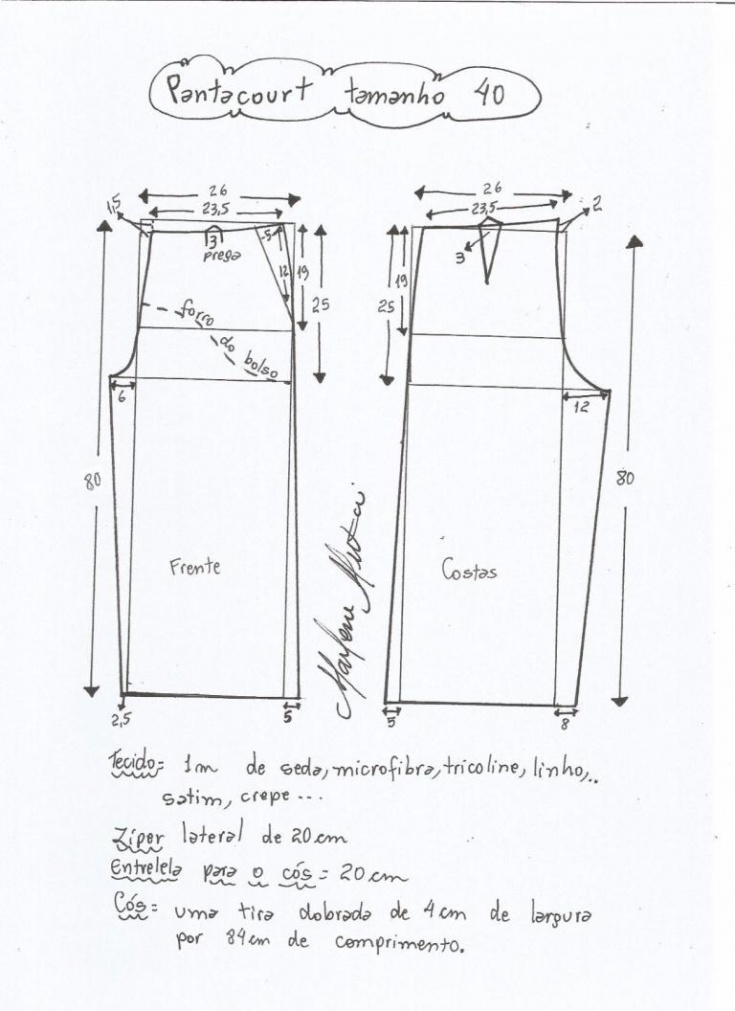 Pantacourt tamanho 40
26
23,5
1,5
3
prega
5
12
19
25
forro
do
bolso
6
80
Frente
2,5
5
26
23,5
2
3
19
25
12
80
Costas
5
8
Marlene
Tecido= 1m de seda, microfibra, tricoline, linho,..
satim, crepe ...
Zíper lateral de 20 cm
Entrelela para o cós = 20 cm
Cós= uma tira dobrada de 4 cm de largura
por 84 cm de comprimento.